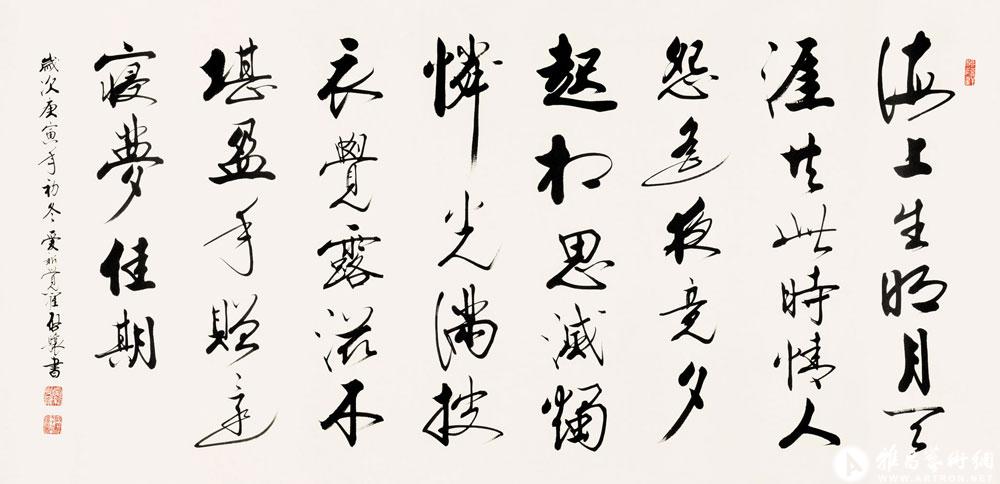 海上生明月天
涯共此時情人
怨遙夜竟夕
起相思滅燭
憐光滿披
衣覺露滋不
堪盈手贈還
寢夢佳期
歲次庚寅年初冬愛新覺羅啟驤書
雅昌藝術網
WWW.ARTRON.NET